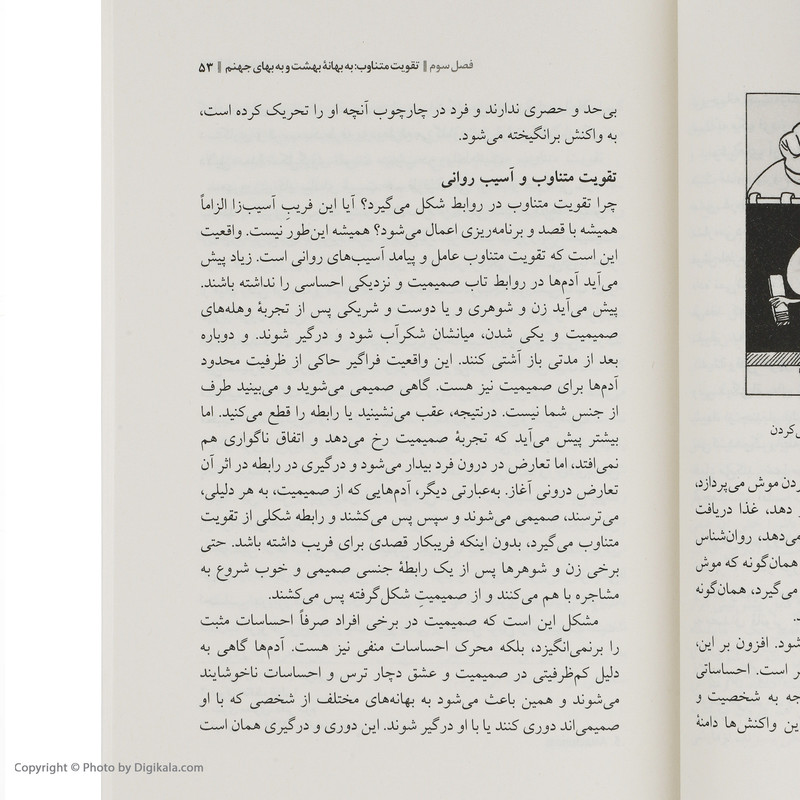 فصل سوم || تقویت متناوب: به بهانهٔ بهشت و به بهای جهنم || ۵۳
بی‌حد و حصری ندارند و فرد در چارچوب آنچه او را تحریک کرده است،
به واکنش برانگیخته می‌شود.
تقویت متناوب و آسیب روانی
چرا تقویت متناوب در روابط شکل می‌گیرد؟ آیا این فریبِ آسیب‌زا الزاماً
همیشه با قصد و برنامه‌ریزی اعمال می‌شود؟ همیشه این‌طور نیست. واقعیت
این است که تقویت متناوب عامل و پیامد آسیب‌های روانی است. زیاد پیش
می‌آید آدم‌ها در روابط تاب صمیمیت و نزدیکی احساسی را نداشته باشند.
پیش می‌آید زن و شوهری و یا دوست و شریکی پس از تجربهٔ وهله‌های
صمیمیت و یکی شدن، میانشان شکرآب شود و درگیر شوند. و دوباره
بعد از مدتی باز آشتی کنند. این واقعیت فراگیر حاکی از ظرفیت محدود
آدم‌ها برای صمیمیت نیز هست. گاهی صمیمی می‌شوید و می‌بینید طرف
از جنس شما نیست. درنتیجه، عقب می‌نشینید یا رابطه را قطع می‌کنید. اما
بیشتر پیش می‌آید که تجربهٔ صمیمیت رخ می‌دهد و اتفاق ناگواری هم
نمی‌افتد، اما تعارض در درون فرد بیدار می‌شود و درگیری در رابطه در اثر آن
تعارض درونی آغاز. به‌عبارتی دیگر، آدم‌هایی که از صمیمیت، به هر دلیلی،
می‌ترسند، صمیمی می‌شوند و سپس پس می‌کشند و رابطه شکلی از تقویت
متناوب می‌گیرد، بدون اینکه فریبکار قصدی برای فریب داشته باشد. حتی
برخی زن و شوهرها پس از یک رابطهٔ جنسی صمیمی و خوب شروع به
مشاجره با هم می‌کنند و از صمیمیتِ شکل‌گرفته پس می‌کشند.
مشکل این است که صمیمیت در برخی افراد صرفاً احساسات مثبت
را برنمی‌انگیزد، بلکه محرک احساسات منفی نیز هست. آدم‌ها گاهی به
دلیل کم‌ظرفیتی در صمیمیت و عشق دچار ترس و احساسات ناخوشایند
می‌شوند و همین باعث می‌شود به بهانه‌های مختلف از شخصی که با او
صمیمی‌اند دوری کنند یا با او درگیر شوند. این دوری و درگیری همان است
کردن
موش می‌پردازد،
دهد، غذا دریافت
می‌دهد، روان‌شناس
همان‌گونه که موش
می‌گیرد، همان‌گونه
شود. افزون بر این،
است. احساساتی
به شخصیت و
این واکنش‌ها دامنهٔ
Copyright © Photo by Digikala.com